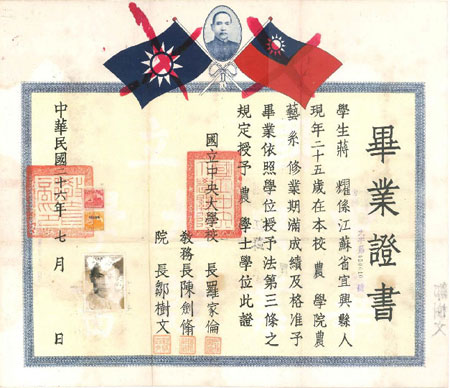 畢業證書
學生蔣 耀係江蘇省宜興縣人
現年二十五歲在本校 農 學院農
藝系 修業期滿成績及格准予
畢業依照學位授予法第三條之
規定授予 農 學士學位此證
國立中央大學校 長羅家倫
教務長陳劍脩
院 長鄒樹文
中華民國二十六年 七 月 日